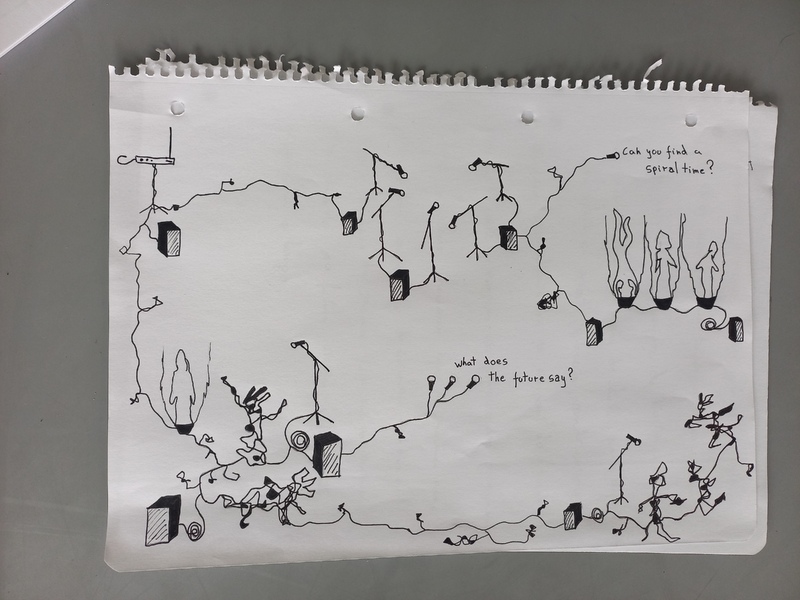 Can you find a
spiral time?
what does
the future say?